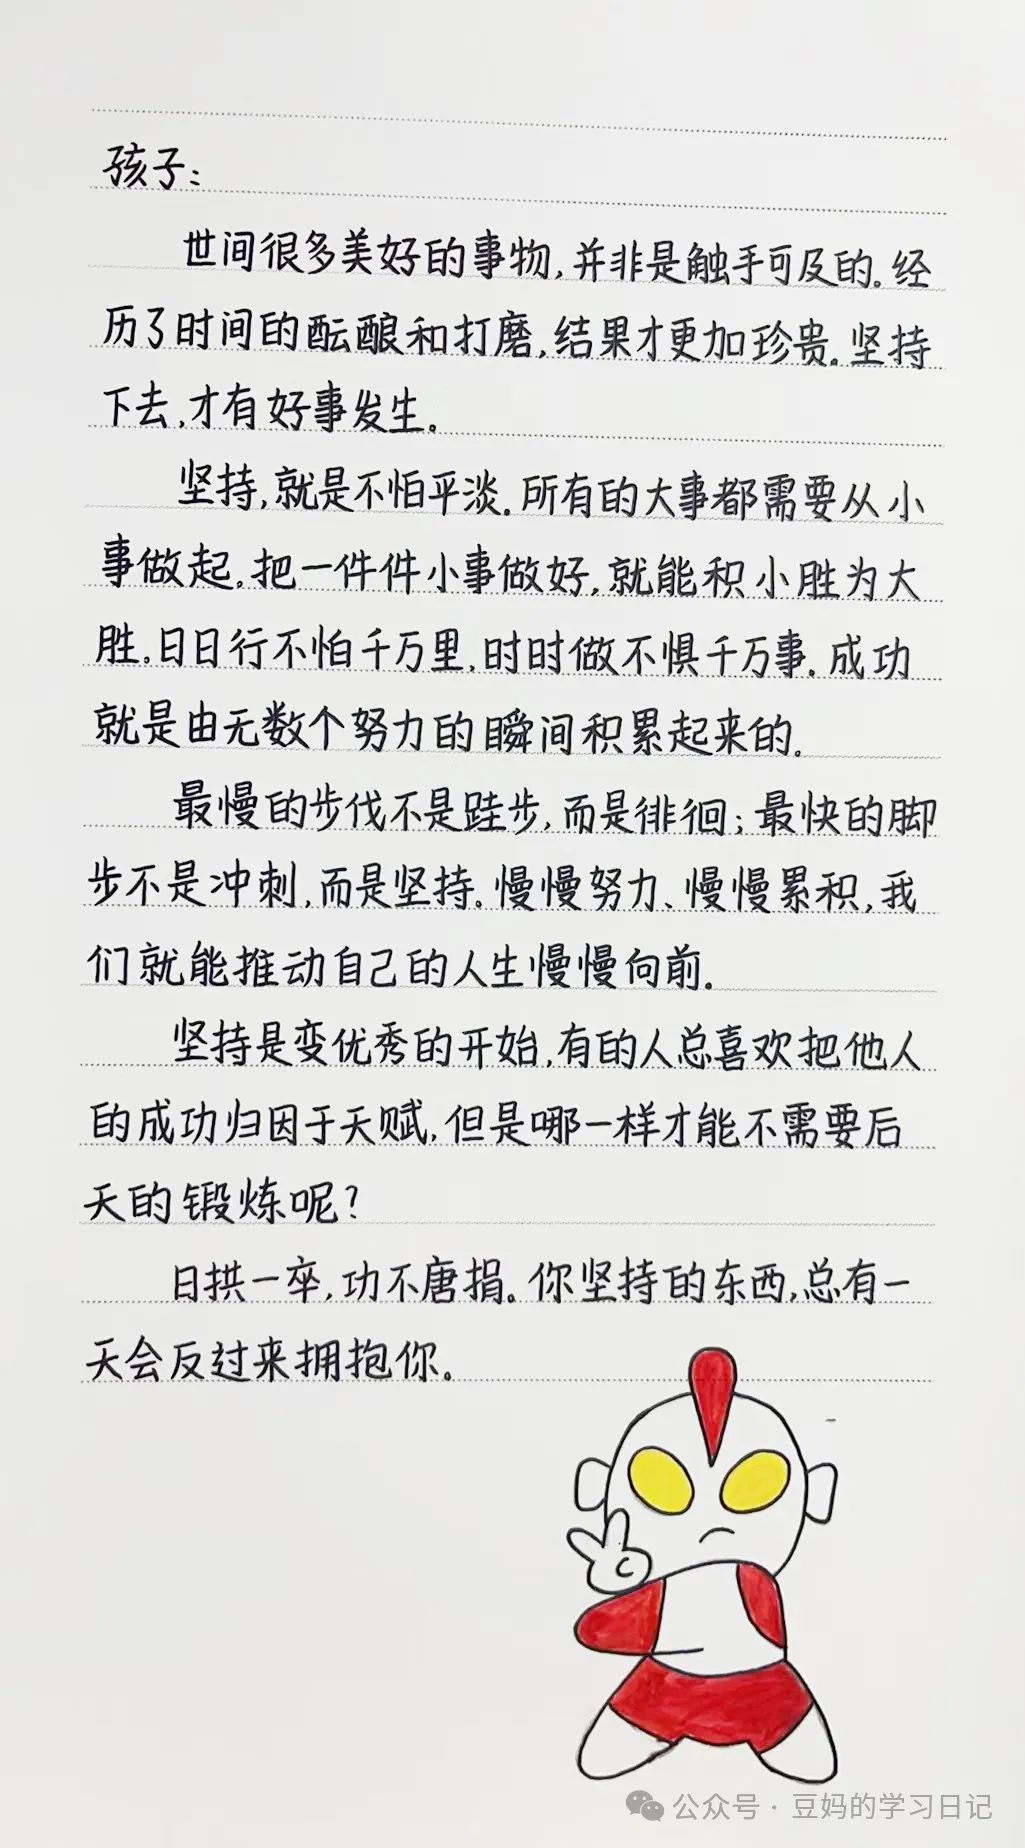 孩子:
世间很多美好的事物,并非是触手可及的。经
历了时间的酝酿和打磨,结果才更加珍贵。坚持
下去,才有好事发生。
坚持,就是不怕平淡。所有的大事都需要从小
事做起。把一件件小事做好,就能积小胜为大
胜。日日行不怕千万里,时时做不惧千万事。成功
就是由无数个努力的瞬间积累起来的。
最慢的步伐不是跬步,而是徘徊;最快的脚
步不是冲刺,而是坚持。慢慢努力、慢慢累积,我
们就能推动自己的人生慢慢向前。
坚持是变优秀的开始,有的人总喜欢把他人
的成功归因于天赋,但是哪一样才能不需要后
天的锻炼呢?
日拱一卒,功不唐捐。你坚持的东西,总有一
天会反过来拥抱你。
公众号·豆妈的学习日记